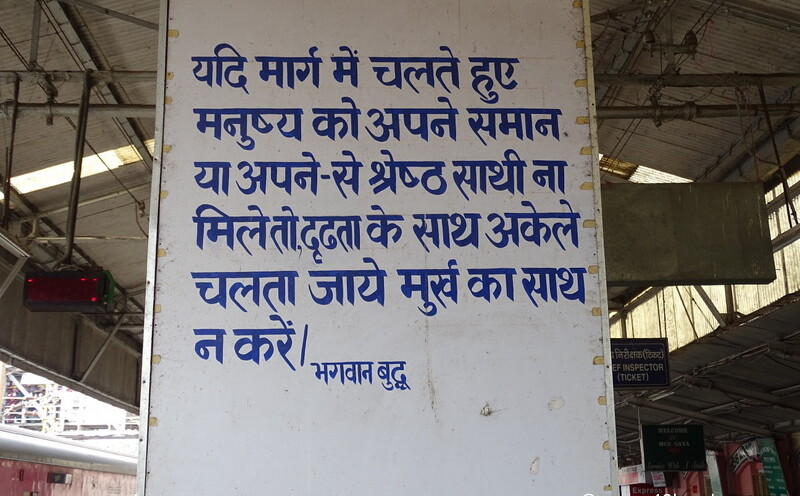 यदि मार्ग में चलते हुए
मनुष्य को अपने समान
या अपने-से श्रेष्ठ साथी ना
मिले तो, दृढता के साथ अकेले
चलता जाये मुर्ख का साथ
न करें/
भगवान बुद्ध
निरीक्षक (टिकट)
EF INSPECTOR
(TICKET)
WELCOME